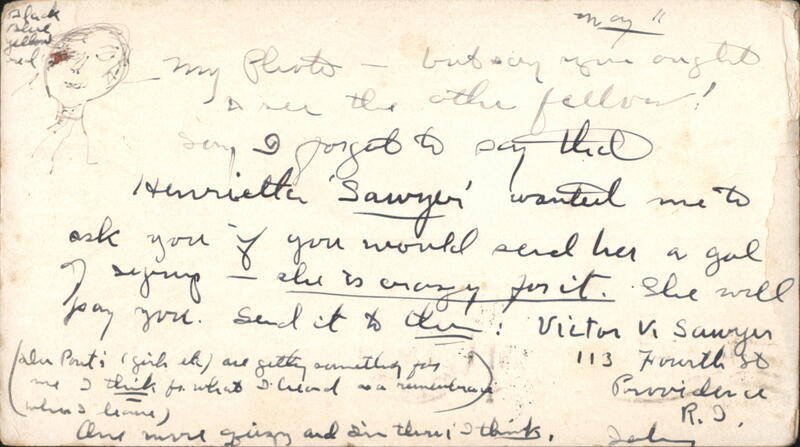 Black
Blue
yellow
red
May 11
My Photo — but say you ought
to see the other fellow!
Say I forgot to say that
Henrietta 'Sawyer' wanted me to
ask you if you would send her a gal
of syrup — she is crazy for it. She will
pay you. Send it to them: Victor V. Sawyer
113 Fourth St
Providence
R.I.
(Alen Pont's (girls etc) are getting something for
me I think fr. what I heard as a remembrance
when I leave)
One more and I'm there, I think.